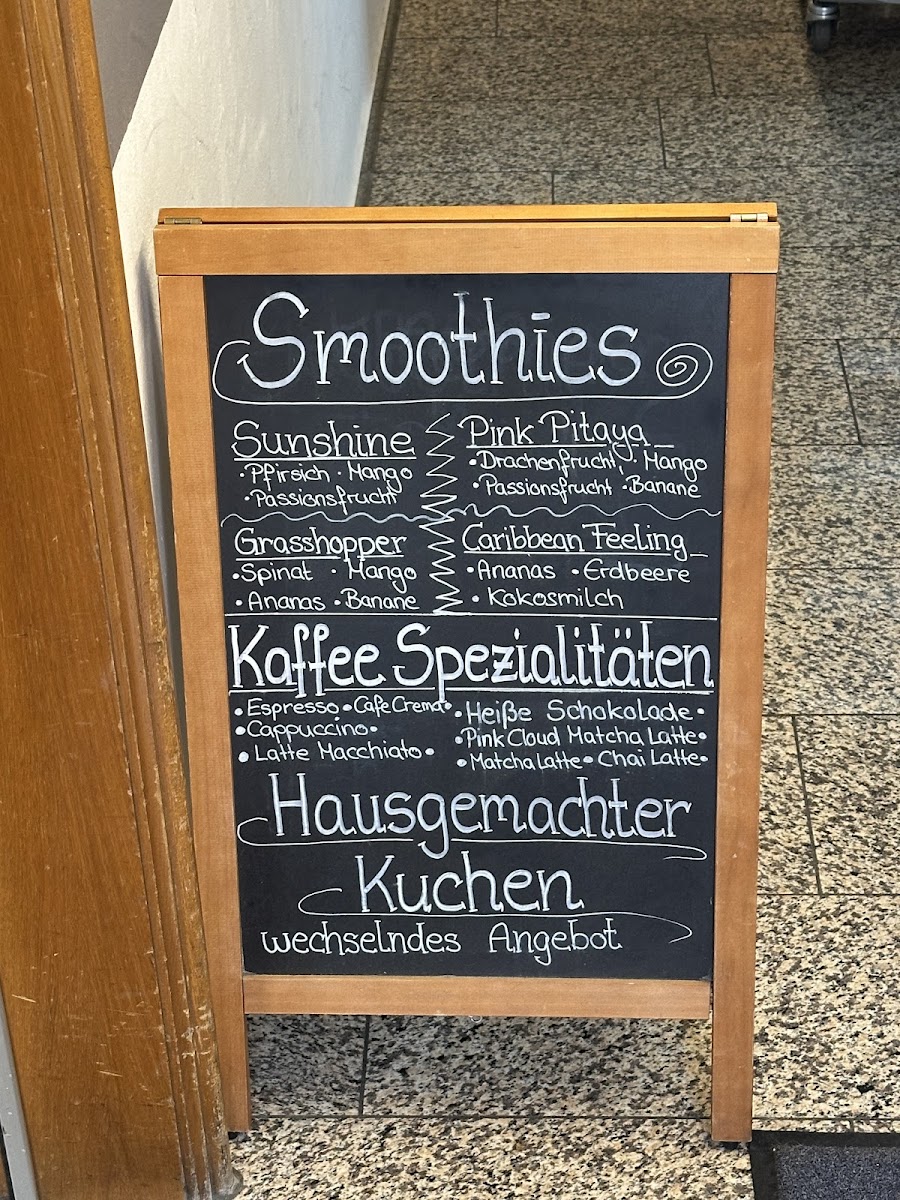 Smoothies
Sunshine
• Pfirsich • Mango
• Passionsfrucht
Pink Pitaya
• Drachenfrucht • Mango
• Passionsfrucht • Banane
Grasshopper
• Spinat • Mango
• Ananas • Banane
Caribbean Feeling
• Ananas • Erdbeere
• Kokosmilch
Kaffee Spezialitäten
• Espresso • Cafe Crema •
• Cappuccino •
• Latte Macchiato •
• Heiße Schokolade •
• Pink Cloud Matcha Latte •
• Matcha latte • Chai Latte •
Hausgemachter
Kuchen
wechselndes Angebot